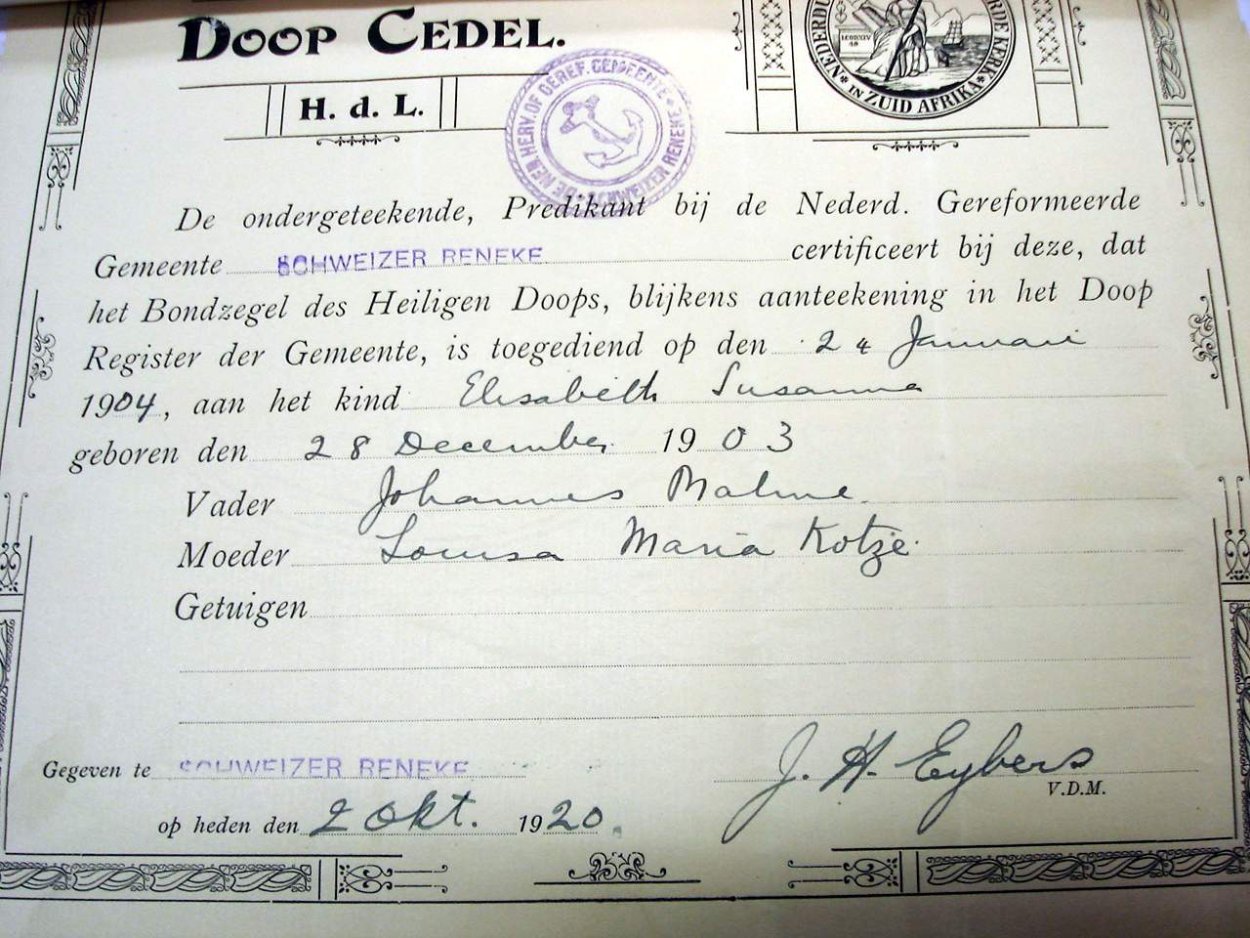 DOOP CEDEL.
H. d. L.
DE NED. HERV. OF GEREF. GEMEENTE SCHWEIZER RENEKE
NEDERDU RDE KERK IN ZUID AFRIKA
De ondergeteekende, Predikant bij de Nederd. Gereformeerde
Gemeente SCHWEIZER RENEKE certificeert bij deze, dat
het Bondzegel des Heiligen Doops, blijkens aanteekening in het Doop
Register der Gemeente, is toegediend op den 24 Januari
1904, aan het kind Elisabeth Susanna
geboren den 28 December 1903
Vader Johannes
Moeder Louisa Maria Kotze
Getuigen
Gegeven te SCHWEIZER RENEKE
J. H. Eybers
V.D.M.
op heden den 2 Okt. 1920